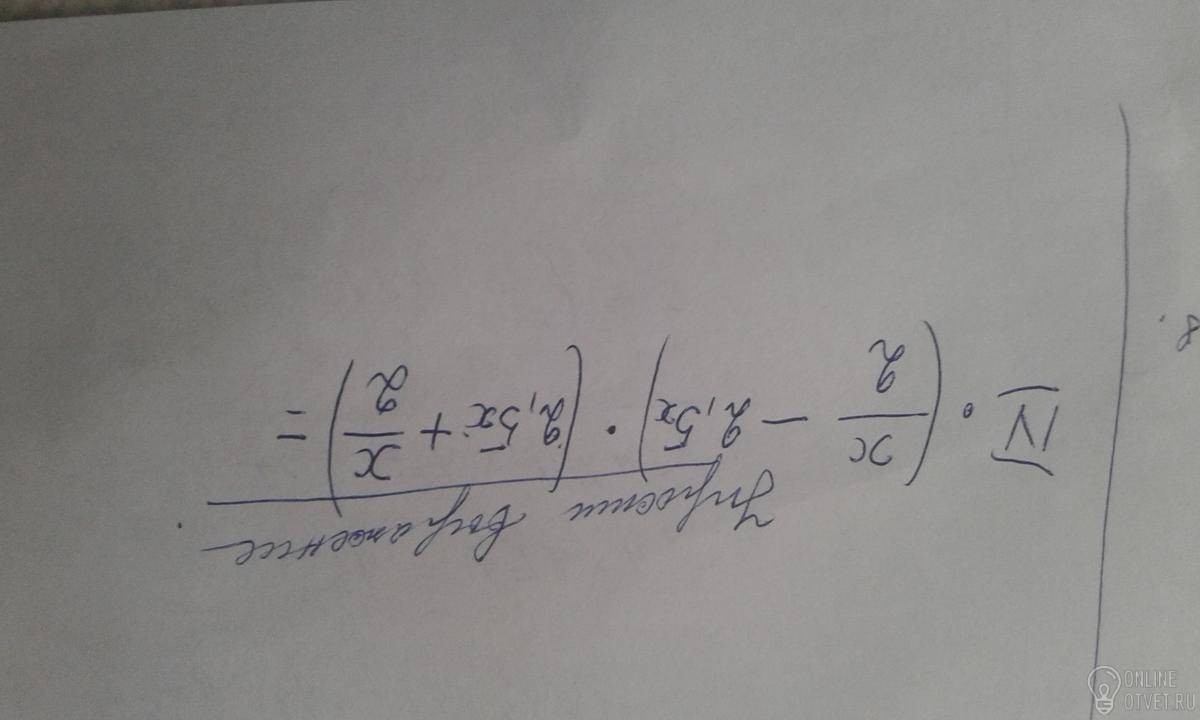 Упрости выражение
IV. (x/2 - 2,5x) · (2,5x + x/2) =
8.
ONLINE
OTVET.RU